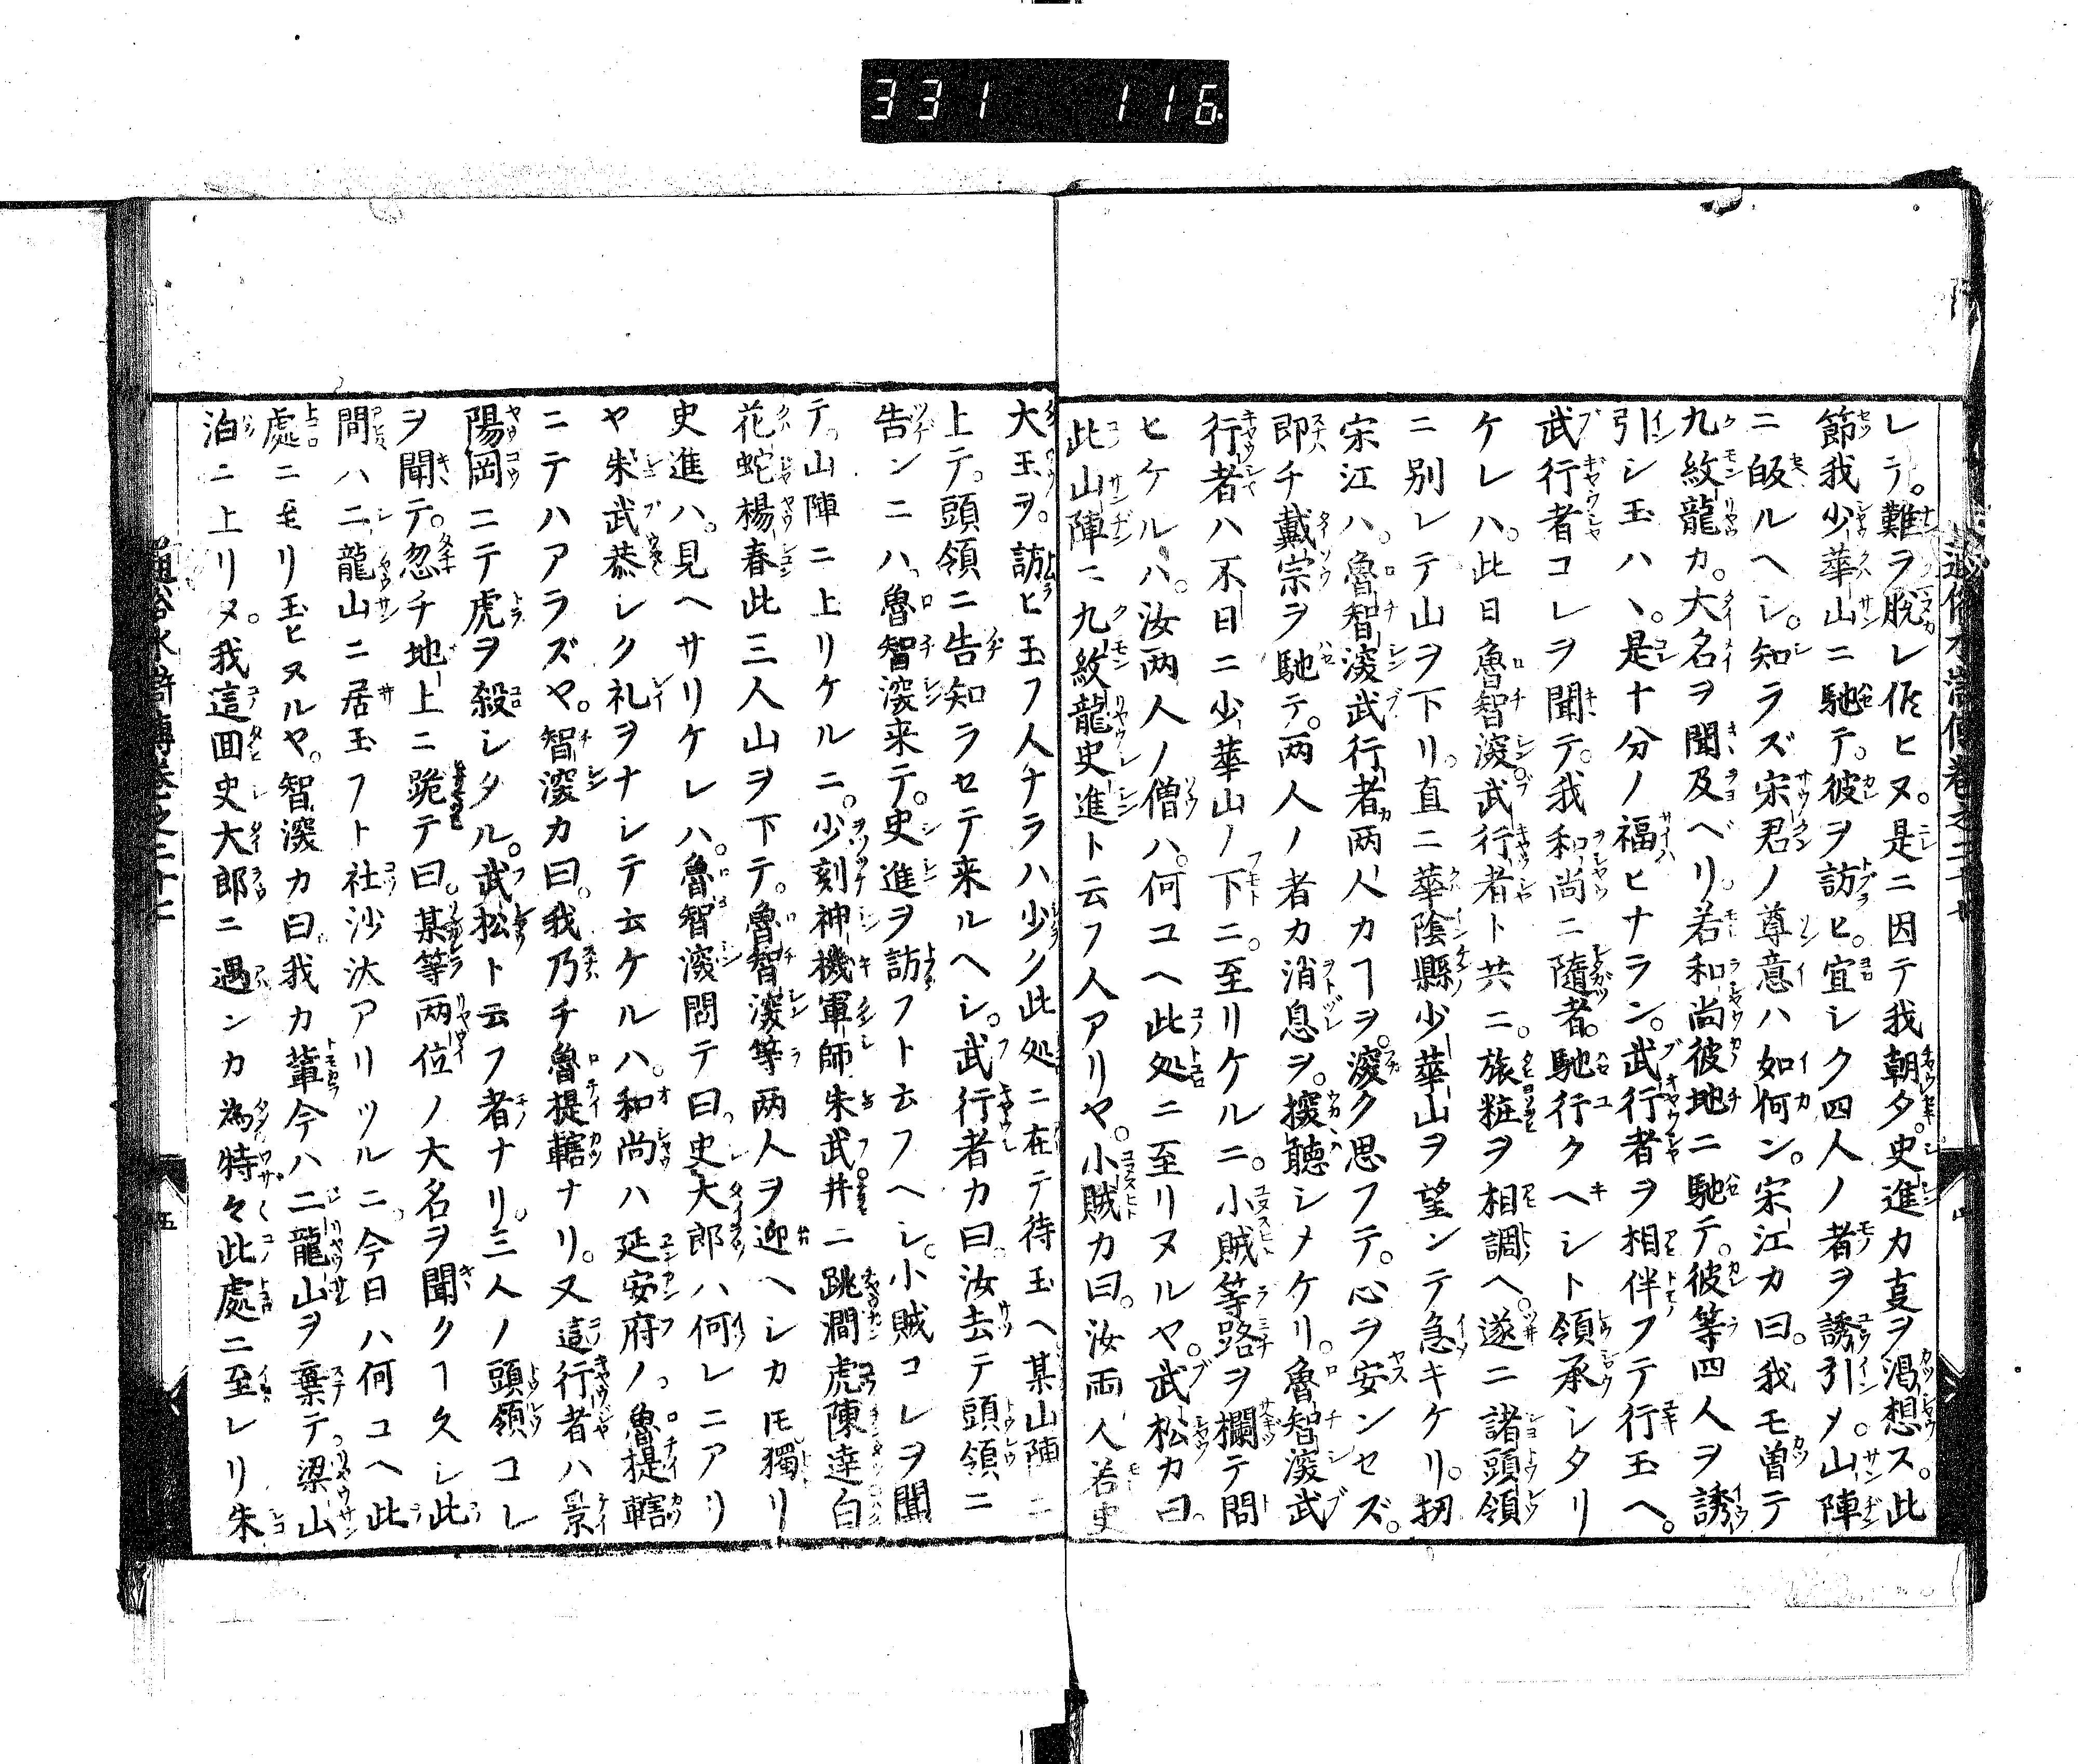 331 116.
レテ。難ヲ脱レ侭ヒヌ。是ニ因テ我朝夕。史進カ叓ヲ渇想ス。此
節我少華山ニ馳テ。彼ヲ訪ヒ。宜シク四人ノ者ヲ誘引メ。山陣
ニ皈ルヘシ。知ラズ宋君ノ尊意ハ如何ン。宋江カ曰。我モ曽テ
九紋龍カ。大名ヲ聞及ベリ。若和尚彼地ニ馳テ。彼等四人ヲ誘
引シ玉ハヽ。是十分ノ福ヒナラン。武行者ヲ相伴フテ行玉ヘ。
武行者コレヲ聞テ。我和尚ニ隨者。馳行クヘシト領承シタリ
ケレハ。此日魯智深武行者ト共ニ。旅粧ヲ相調ヘ。遂ニ諸頭領
ニ別レテ山ヲ下リ。直ニ華陰縣少華山ヲ望ンテ急キケリ。扨
宋江ハ。魯智深武行者両人カヿヲ。深ク思フテ。心ヲ安ンセズ。
即チ戴宗ヲ馳テ。両人ノ者カ消息ヲ。探聴シメケリ。魯智深武
行者ハ不日ニ少華山ノ下ニ。至リケルニ。小賊等路ヲ欄テ問
ヒケルハ。汝両人ノ僧ハ。何コヘ此処ニ至リヌルヤ。武松カ曰。
此山陣ニ九紋龍史進ト云フ人アリヤ。小賊カ曰。汝両人若史
大王ヲ。訪ヒ玉フ人ナラハ少ク此処ニ在テ待玉ヘ某山陣ニ
上テ。頭領ニ告知ラセテ来ルヘシ。武行者カ曰。汝去テ頭領ニ
告ンニハ。魯智深来テ。史進ヲ訪フト云フヘシ。小賊コレヲ聞
テ。山陣ニ上リケルニ。少刻神機軍師朱武并ニ跳澗虎陳達白
花蛇楊春此三人山ヲ下テ。魯智深等両人ヲ迎ヘシカ𪜈獨リ
史進ハ。見ヘサリケレハ。魯智深問テ曰。史大郎ハ何レニアリ
ヤ朱武恭レク礼ヲナシテ云ケルハ。和尚ハ延安府ノ。魯提轄
ニテハアラズヤ。智深カ曰。我乃チ魯提轄ナリ。又這行者ハ景
陽岡ニテ虎ヲ殺シタル。武松ト云フ者ナリ。三人ノ頭領コレ
ヲ聞テ。忽チ地上ニ跪テ曰。某等両位ノ大名ヲ聞クヿ久シ此
間ハ二龍山ニ居玉フト社沙汰アリツルニ。今日ハ何コヘ此
處ニ至リ玉ヒヌルヤ。智深カ曰。我カ輩今ハ二龍山ヲ棄テ。梁山
泊ニ上リヌ。我這囬史大郎ニ遇ンカ為特々此處ニ至レリ朱
五